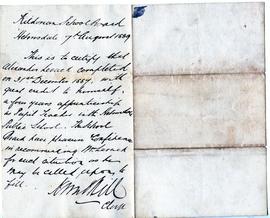 Kildonan School Board
Helmsdale 7th August 1889
This is to certify that
Alexander Leod completed
on 31st December 1887, with
great credit to himself,
a four years apprenticeship
as Pupil Teacher with Helmsdale
Public School. The School
Board have pleasure &
in recommending Mr Leod
for such situation as he
may be called upon to
fill.
Clerk